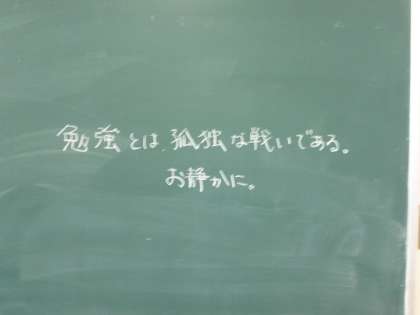 勉強とは、孤独な戦いである。
お静かに。